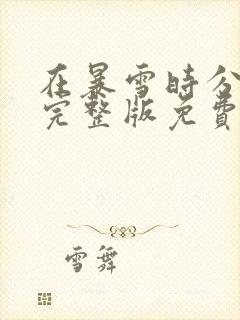 在暴雪時分
完整版免費
雪舞